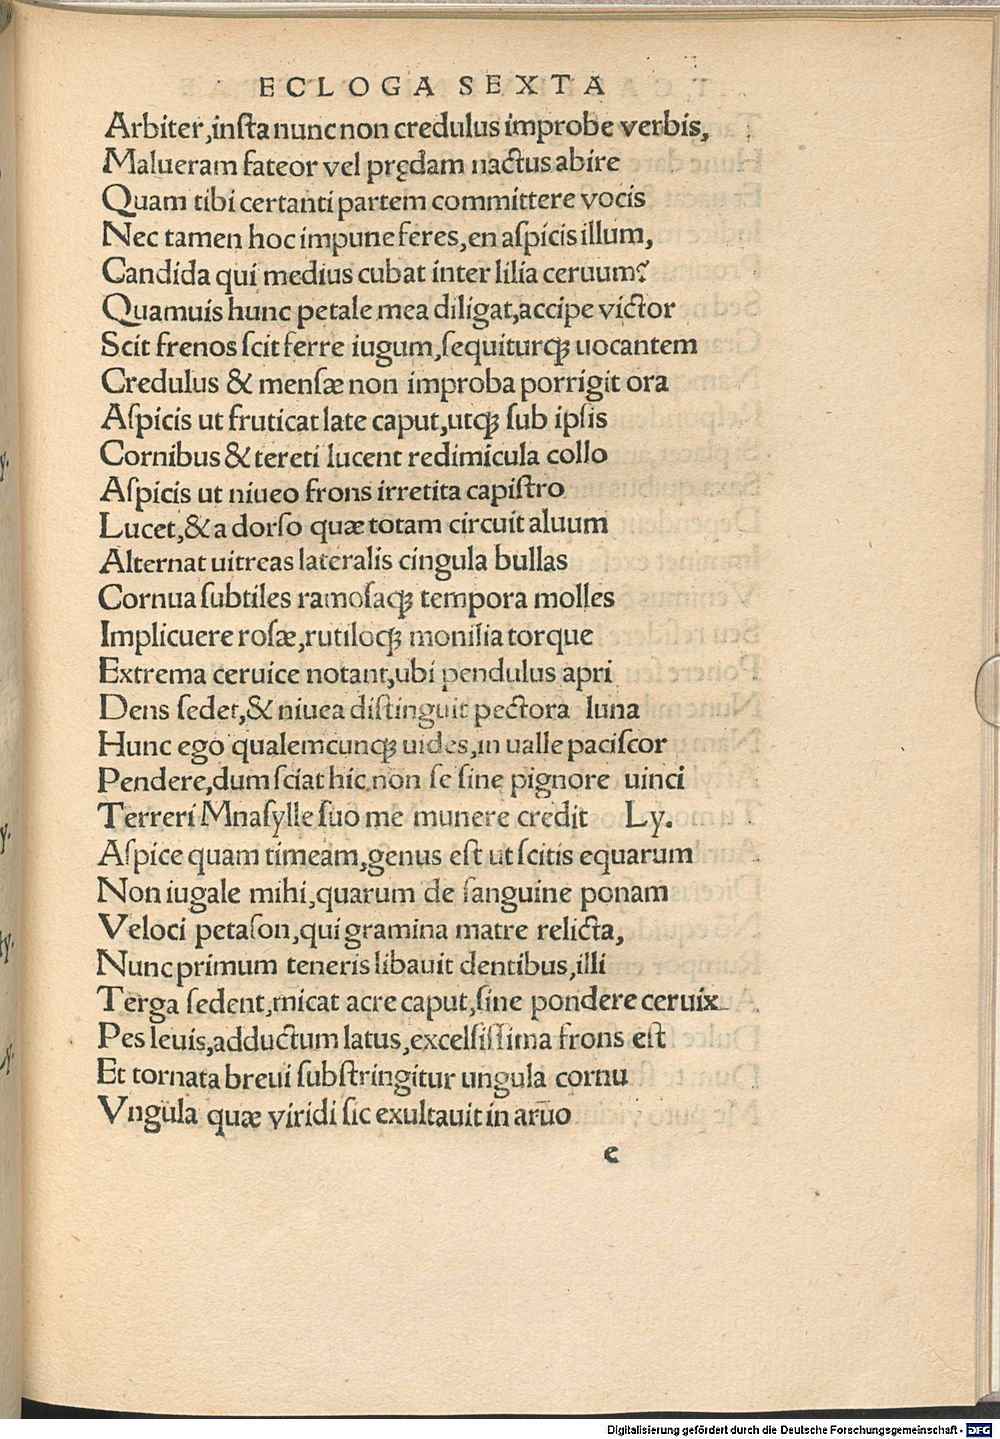 ECLOGA SEXTA
Arbiter,inſta nunc non credulus improbe verbis,
Malueram fateor vel prędam nactus abire
Quam tibi certanti partem committere vocis
Nec tamen hoc impune feres,en aſpicis illum,
Candida qui medius cubat inter lilia ceruum?
Quamuis hunc petale mea diligat,accipe victor
Scit frenos ſcit ferre iugum,ſequiturqꝫ uocantem
Credulus & menſæ non improba porrigit ora
Aſpicis ut fruticat late caput,utqꝫ ſub ipſis
Cornibus & tereti lucent redimicula collo
Aſpicis ut niueo frons irretita capiſtro
Lucet,& a dorſo quæ totam circuit aluum
Alternat uitreas lateralis cingula bullas
Cornua ſubtiles ramoſaqꝫ tempora molles
Implicuere roſæ,rutiloqꝫ monilia torque
Extrema ceruice notant,ubi pendulus apri
Dens ſedet,& niuea diſtinguit pectora luna
Hunc ego qualemcunqꝫ uides,in ualle paciſcor
Pendere,dum sciat hic non ſe ſine pignore uinci
Terreri Mnaſylle ſuo me munere credit Ly.
Aſpice quam timeam,genus eſt ut ſcitis equarum
Non iugale mihi,quarum de ſanguine ponam
Veloci petaſon,qui gramina matre relicta,
Nunc primum teneris libauit dentibus,illi
Terga ſedent,micat acre caput,ſine pondere ceruix
Pes leuis,adductum latus,excelſiſſima frons eſt
Et tornata breui ſubſtringitur ungula cornu
Vngula quæ viridi ſic exultauit in aruo
c
Digitalisierung gefördert durch die Deutsche Forschungsgemeinschaft - DFG